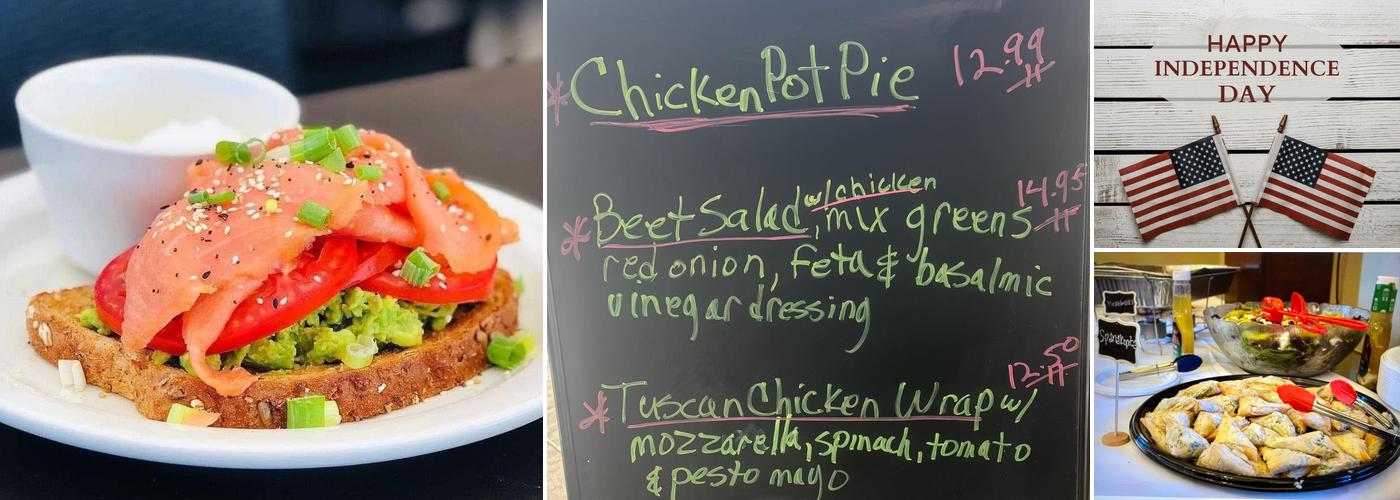 *Chicken Pot Pie 12.99
*Beet Salad w/chicken, mix greens 14.95
red onion, feta & basalmic
vinegar dressing
*Tuscan Chicken Wrap w/ 12.50
mozzarella, spinach, tomato
& pesto mayo
HAPPY
INDEPENDENCE
DAY